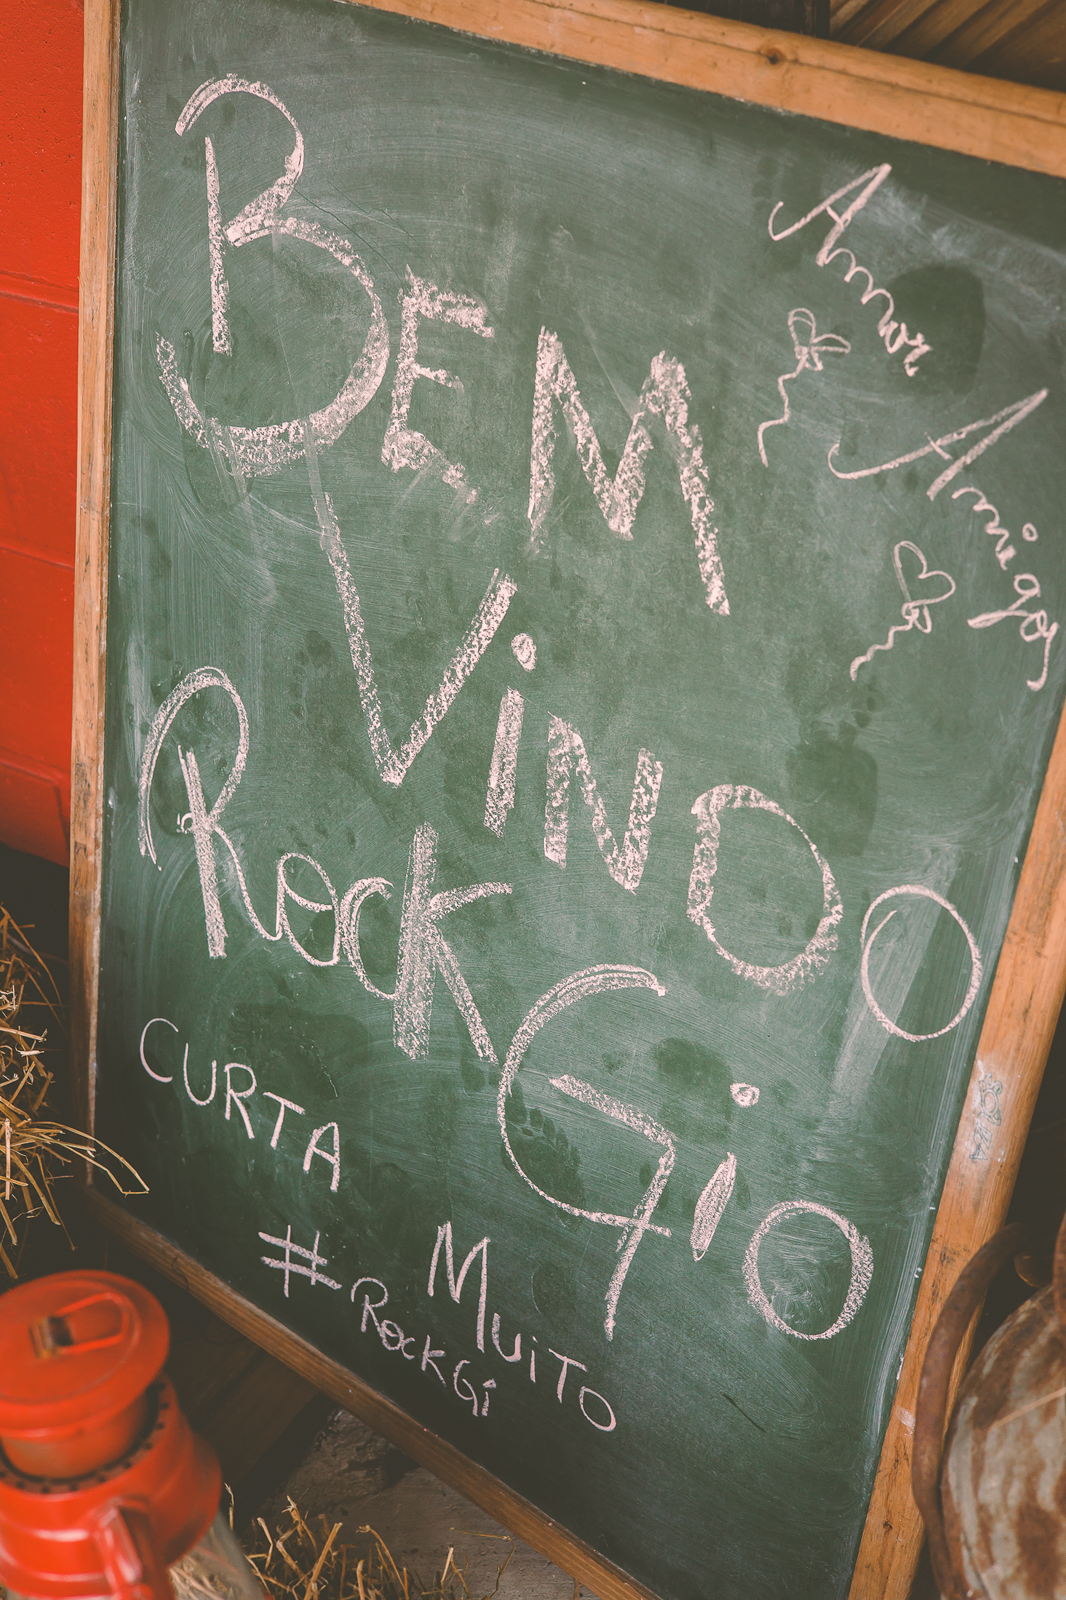 BEM
ViNDO O
RocK GiO
CURTA MUiTO
#RocKGi
Amor
Amigos